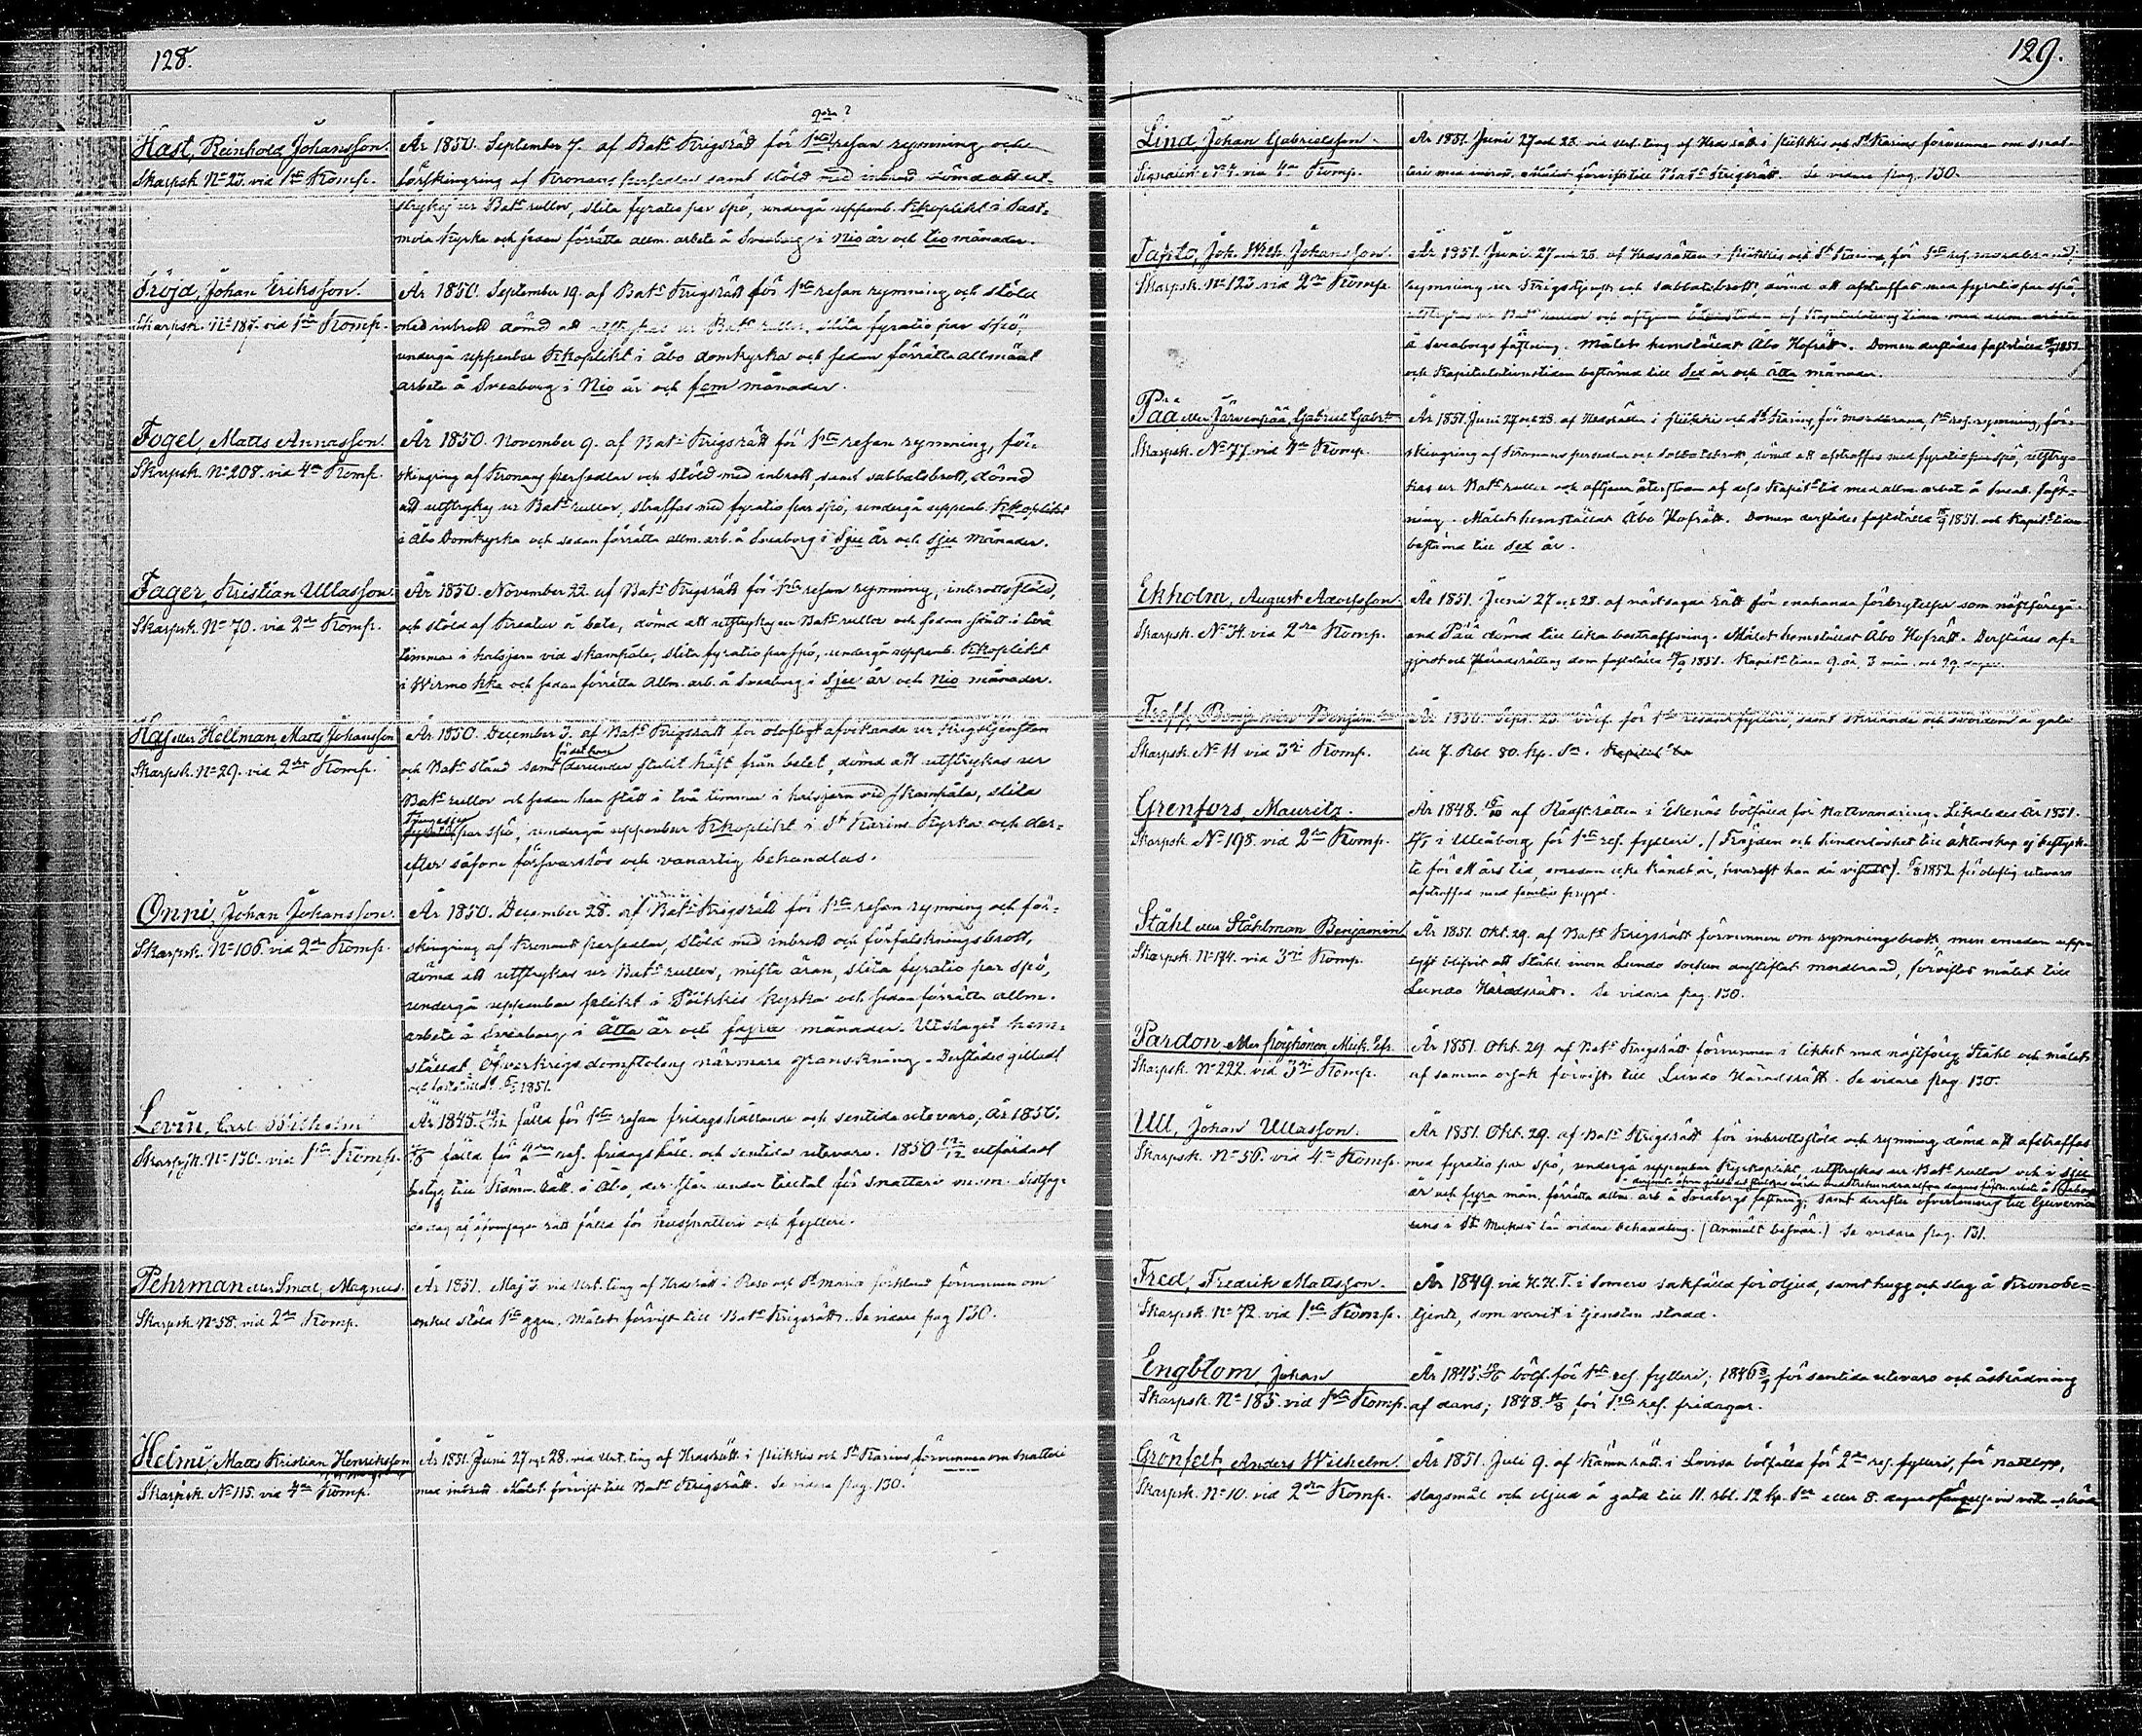 128.
2dra ?
Hast, Reinhold Johansson.
Skarpsk. No 23. vid 1sta Komp.
År 1850. September 7. af Bats Krigsrätt för 1sta resan rymning och
förskingring af Kronans persedlar samt stöld med inbrott dömd att ut-
strykas ur Bats rullor, slita fyratio par spö, undergå uppenb. Kkoplikt i Sast-
mola Kyrka och sedan förrätta allm. arbete å Sveaborg i Nio år och tio månader.
Fröjd, Johan Eriksson.
Skarpsk. No 187. vid 1sta Komp.
År 1850. September 19. af Bats Krigsrätt för 1sta resan rymning och stöld
med inbrott dömd att utstrykas ur Bats rullor, slita fyratio par spö,
undergå uppenbar Kkoplikt i Åbo domkyrka och sedan förrätta allmänt
arbete å Sveaborg i Nio år och fem månader.
Fogel, Matts Annasson.
Skarpsk. No 208. vid 4de Komp.
År 1850. November 9. af Bats Krigsrätt för 1sta resan rymning, för-
skingring af Kronans persedlar och stöld med inbrott, samt sabbatsbrott, dömd
att utstrykas ur Bats rullor, straffas med fyratio par spö, undergå uppenb. Kkoplikt
i Åbo Domkyrka och sedan förrätta allm. arb. å Sveaborg i Sju år och sju månader.
Fager, Kristian Ullasson.
Skarpsk. No 70. vid 2dra Komp.
År 1850. November 22. af Bats Krigsrätt för 1sta resan rymning, inbrottsstöld,
och stöld af Kreatur å bete, dömd att utstrykas ur Bats rullor och sedan stått i två
timmar i halsjern vid skampåle, slita fyratio par spö, undergå uppenb. Kkoplikt
i Wirmo kka och sedan förrätta allm. arb. å Sveaborg i Sju år och Nio månader.
Haj eller Hellman, Matts Johansson
Skarpsk. No 29. vid 2dra Komp.
År 1850. December 3. af Bats Krigsrätt för olofligt afvikande ur Krigstjensten
och Bats stånd samt för det han derunder stulit häst från betet, dömd att utstrykas ur
Bats rullor och sedan han stått i två timmar i halsjern vid skampåle, slita
par spö, undergå uppenbar Kkoplikt i St Karins Kyrka och der-
efter såsom försvarslös och vanartig behandlas.
Onni, Johan Johansson.
Skarpsk. No 106. vid 2dra Komp.
År 1850. December 28. af Bats Krigsrätt för 1sta resan rymning och för-
skingring af Kronans persedlar, stöld med inbrott och förfalskningsbrott,
dömd att utstrykas ur Bats rullor, mista äran, slita fyratio par spö,
undergå uppenbar plikt i Piikkis kyrka och sedan förrätta allm.
arbete å Sveaborg i Åtta år och fyra månader. Utslaget hem-
ställdt Öfverkrigsdomstolens närmare granskning. Derstädes gilladt
1851.
Levin, Carl Wilhelm
Skarpsk. No 130. vid 1sta Komp.
År 1848. fälld för 1sta resan fridagshållande och sentida utevaro; År 1850.
fälld för 2dra res. fridagshåll. och sentida utevaro. 1850 utfärdadt
betyg till Kämn. Rätt. i Åbo, der står under tilltal för snatteri m. m.
rätt fälld för snatteri och fylleri.
Pehrman eller Smed, Magnus.
Skarpsk. No 58. vid 2dra Komp.
År 1851. Maj 3. vid Urt. ting af Hdsrätt i Reso och St Marie socknar förvunnen om
enkel stöld 1sta ggn. Målet förvist till Bats Krigsrätt. Se vidare pag 130.
Helmi, Matts Kristian Henriksson
Skarpsk. No 115. vid 4de Komp.
År 1851. Juni 27 och 28. vid Urt. ting af Hdsrätt i Piikkis och St Karins förvunnen om snatteri
med inbrott. Målet förvist till Bats Krigsrätt. Se vidare pag. 130.
129.
Lind Johan Gabrielsson.
Signalist No 4. vid 4de Komp.
År 1851. Juni 27 och 28. vid Urt. ting af Hdsrätt i Piikkis och St Karins förvunnen om snat-
teri med inbrott. Målet förvist till Bats Krigsrätt. Se vidare pag. 130.
Johansson.
Skarpsk. No 123 vid 2dra Komp.
År 1851. Juni 27 och 28. af Hdsrätten i Piikkis och St Karins, för 1sta res. mordbrand,
rymning ur Krigstjenst och sabbatsbrott, dömd att afstraffas med fyratio par spö,
utstrykas ur Bats rullor och aftjena återstoden af Kapitulations tiden med allm. arbete
å Sveaborgs fästning. Målet hemställdt Åbo Hofrätt. Domen derstädes fastställd 1851.
och Kapitulationstiden bestämd till Sex år och Åtta månader.
Pää eller Järvenpää, Gabriel
Skarpsk. No 77 vid 4de Komp.
År 1851. Juni 27 och 28. af Hdsrätten i Piikkis och St Karins, för mordbrand, 1sta res. rymning, för-
skingring af Kronans persedlar och Sabbatsbrott, dömd att afstraffas med fyratio par spö, utstry-
kas ur Bats rullor och aftjena återstoden af dess Kapits tid med allm. arbete å Sveab. fäst-
ning. Målet hemställdt Åbo Hofrätt. Domen derstädes fastställd 1851. och Kapits tiden
bestämd till Sex år.
Ekholm, August Adolfsson.
Skarpsk. No 34. vid 2dra Komp.
År 1851. Juni 27 och 28. af nästsagde rätt för enahanda förbrytelser som nästföregå-
ende Pää dömd till lika bestraffning. Målet hemställdt Åbo Hofrätt. Derstädes af-
gjordt och Häradsrättens dom fastställd 1851. Kapits tiden 9. år, 3 mån. och 29. dagar.
Skarpsk. No 11 vid 3dje Komp.
till 7. Rbl 80. kp. Sr.
Grenfors, Mauritz.
Skarpsk. No 198. vid 2dra Komp.
År 1848. af Rådst. rätten i Ekenäs bötfälld för nattvandring. Likaledes År 1851.
i Uleåborg för 1sta res. fylleri. (Frejden och hinderlöshet till äktenskap ej bestyrk-
te för ett års tid, emedan icke kändt är, hvarest han då vistats). 1852 för oloflig utevaro
afstraffad med
Ståhl eller Ståhlman Benjamin
Skarpsk. No 174. vid 3dje Komp.
År 1851. Okt. 29. af Bats Krigsrätt förvunnen om rymningsbrott, men emedan upp-
lyst blifvit att Ståhl inom Lundo socken anstiftat mordbrand, förvistes målet till
Lundo Häradsrätt. Se vidare pag. 130.
Pardon, eller
Skarpsk. No 222. vid 3dje Komp.
År 1851. Okt. 29. af Bats Krigsrätt förvunnen i likhet med nästföreg. Ståhl och målet
af samma orsak förvist till Lundo Häradsrätt. Se vidare pag. 130.
Ull, Johan Ullasson.
Skarpsk. No 56. vid 4de Komp.
År 1851. Okt. 29. af Bats Krigsrätt för inbrottsstöld och rymning dömd att afstraffas
med fyratio par spö, undergå uppenbar Kyrkoplikt, utstrykas ur Bats rullor och i sju
år och fyra mån. förrätta allm. arb. å Sveaborgs fästning, samt derefter öfverlemnas till Guvernö-
rens i St Mickels län vidare behandling. (Anmält besvär.) Se vidare pag. 131.
Fred, Fredrik Mattsson.
Skarpsk. No 72. vid 1sta Komp.
År 1849. vid H.H.T. i Somero sakfälld för oljud, samt hugg och slag å Kronobe-
tjent, som varit i tjensten stadd.
Engblom, Johan
Skarpsk. No 185. vid 1sta Komp.
År 1845. bötf. för 1sta res. fylleri; 1846 för sentida utevaro och åskådning
af dans; 1848. för 1sta res. fridagar.
Grönfelt, Anders Wilhelm.
Skarpsk. No 10. vid 2dra Komp.
År 1851. Juli 9. af Kämn. rätt. i Lovisa bötfälld för 2dra res. fylleri, för nattlopp,
slagsmål och oljud å gata till 11. rbl. 12 kp. Sr eller 8. dagars fängelse vid vatten och bröd